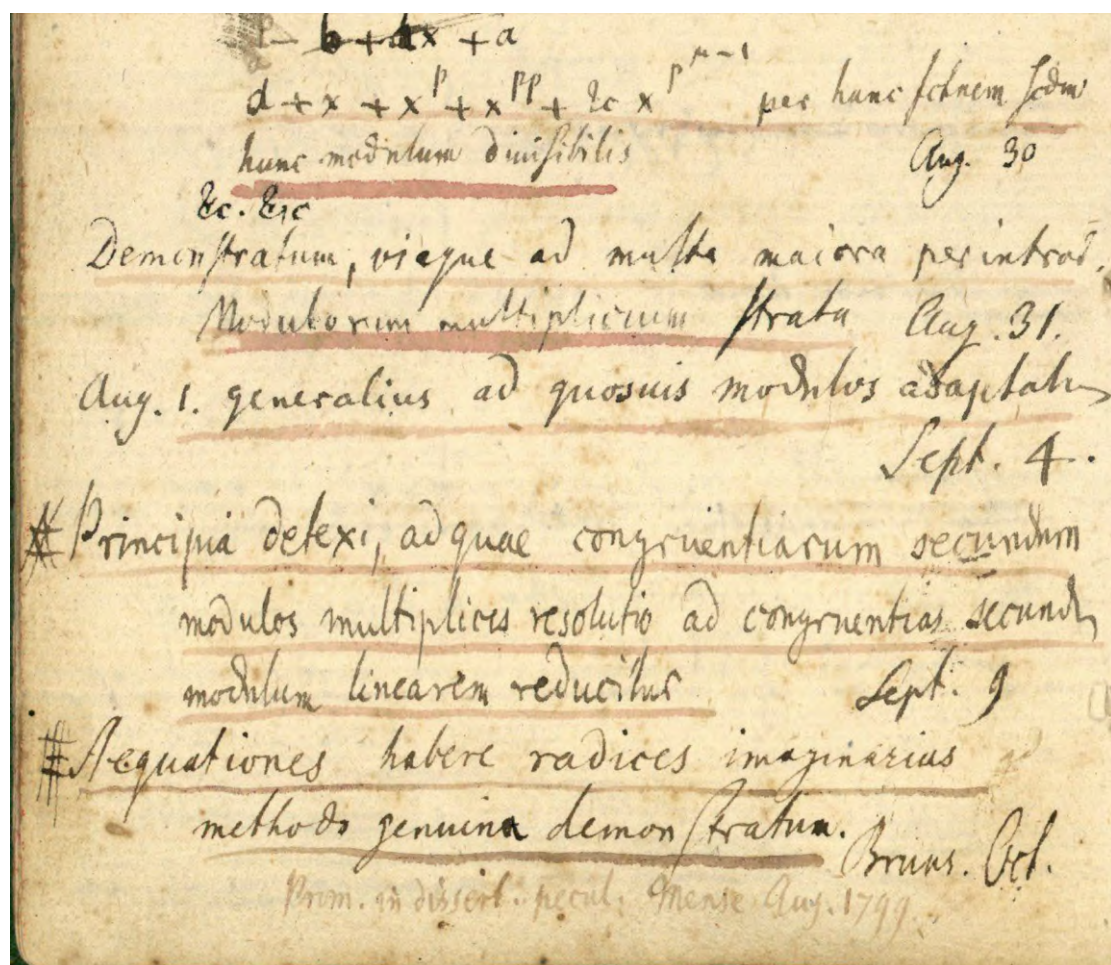 a + x + x^p + x^pp + &c x^p^μ−1 per hanc fctnem scdm
hunc modulum divisibilis Aug. 30
&c. &c
Demonstratum, viaque ad multa maiora per introd.
Modulorum multiplicium strata Aug. 31.
Aug. 1. generalius ad quosuis modulos adaptatur
Sept. 4.
Principia detexi, ad quae congruentiarum secundum
modulos multiplices resolutio ad congruentias secundu
modulum linearem reducitur Sept. 9
Aequationes habere radices imaginarias
methodo genuina demonstratum. Bruns. Oct.
Prom. in dissert. pecul. Mense Aug. 1799.